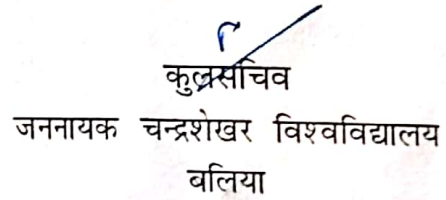 कुलसचिव
जननायक चन्द्रशेखर विश्वविद्यालय
बलिया